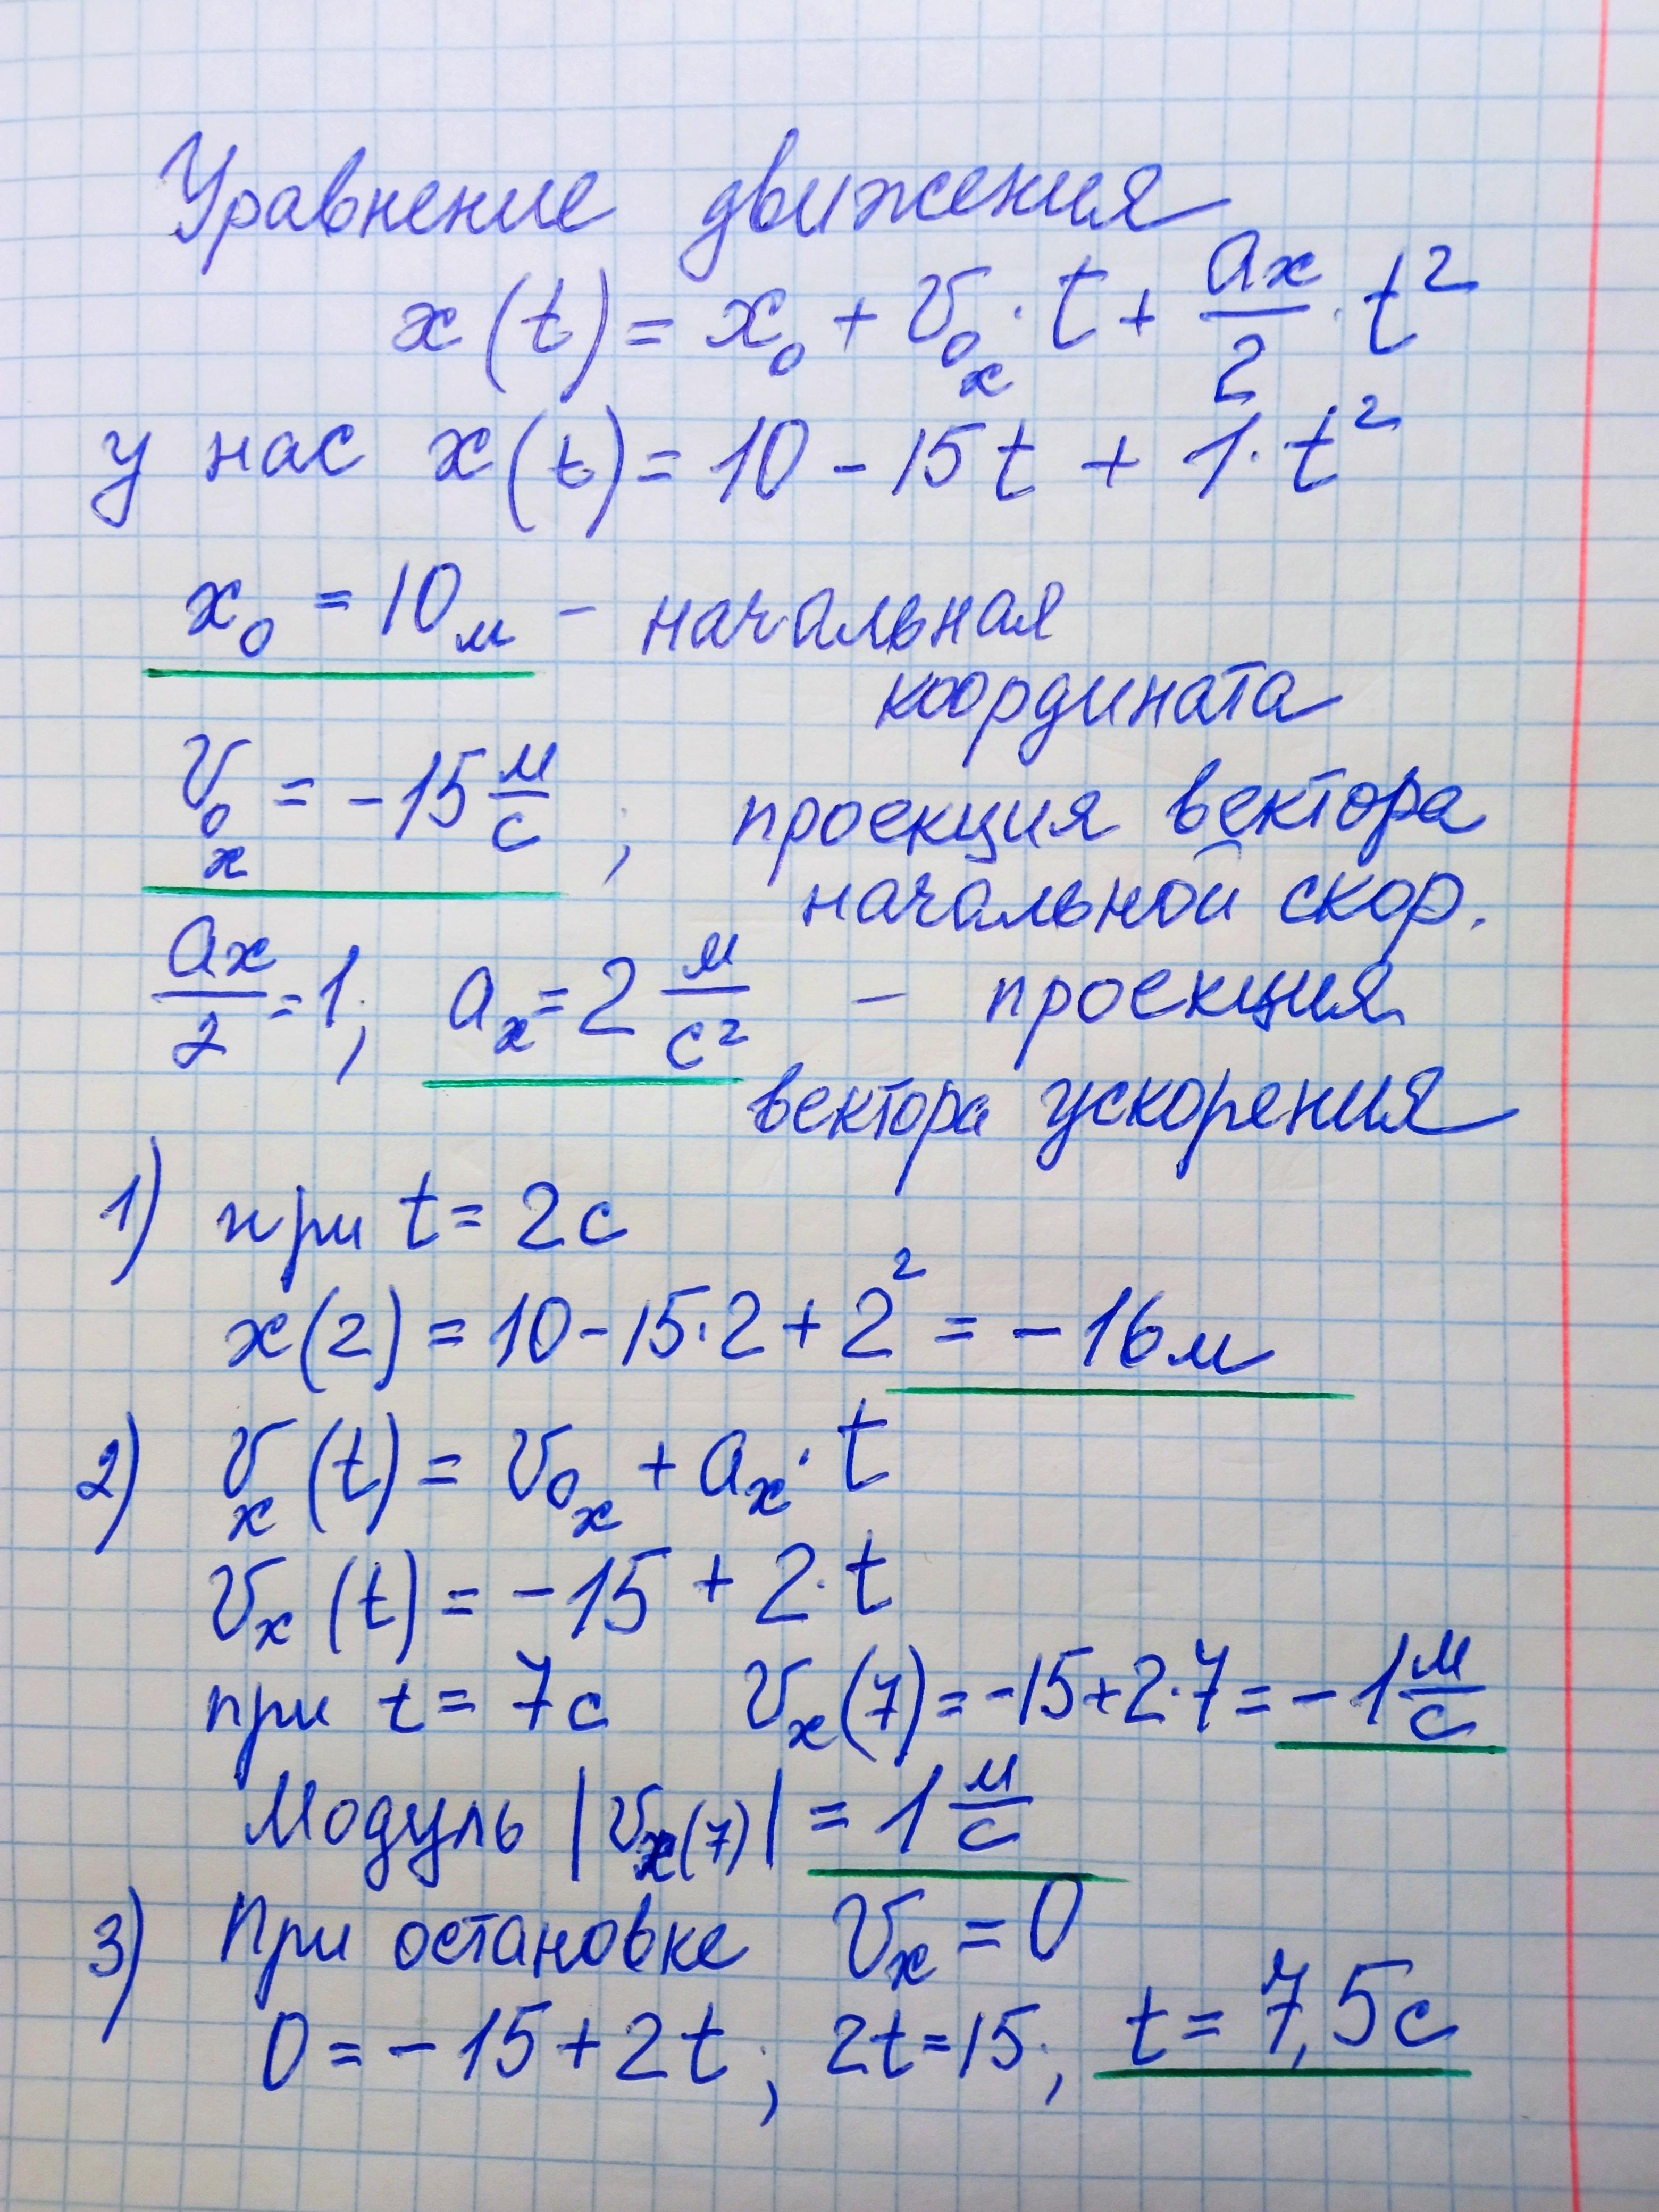 Уравнение движения
x(t) = x₀ + v₀ₓ · t + aₓ/2 · t²
у нас x(t) = 10 - 15t + 1 · t²
x₀ = 10 м - начальная
координата
v₀ₓ = -15 м/с ; проекция вектора
начальной скор.
aₓ/2 = 1; aₓ = 2 м/с² - проекция
вектора ускорения
1) при t = 2с
x(2) = 10 - 15·2 + 2² = -16 м
2) vₓ(t) = v₀ₓ + aₓ · t
vₓ(t) = -15 + 2·t
при t = 7с vₓ(7) = -15 + 2·7 = -1 м/с
Модуль |vₓ(7)| = 1 м/с
3) При остановке vₓ = 0
0 = -15 + 2t ; 2t = 15; t = 7,5с